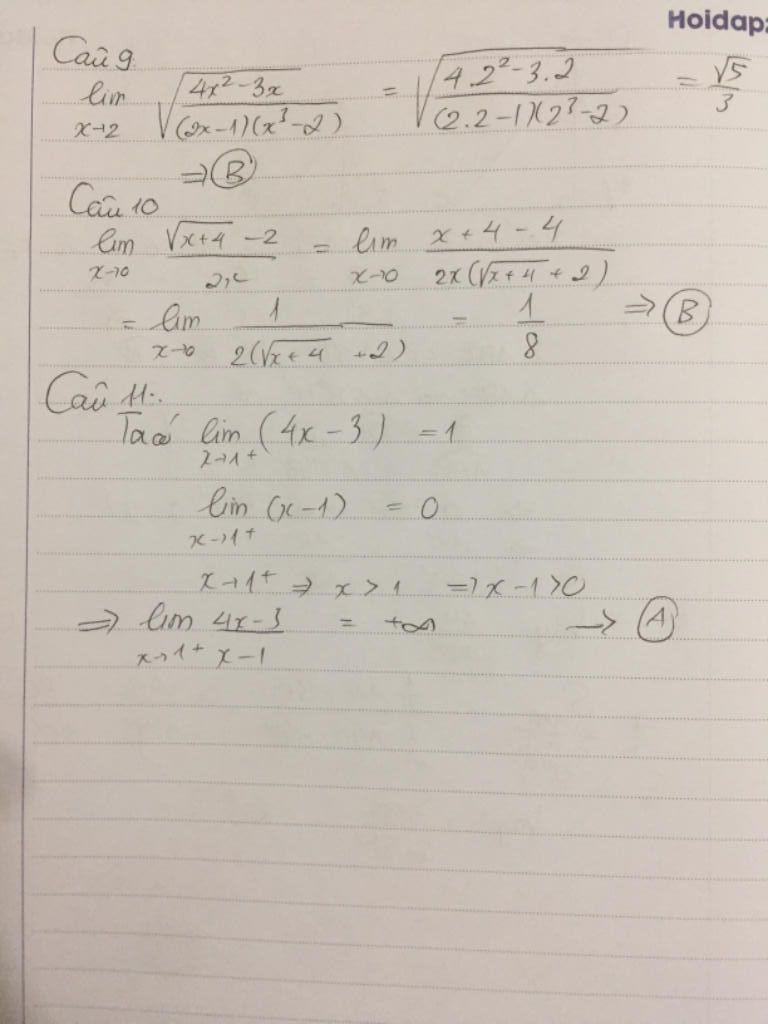 Hoidap
Câu 9
lim x→2 √((4x²-3x)/((2x-1)(x³-2))) = √((4.2²-3.2)/((2.2-1)(2³-2))) = √5/3
⇒ B
Câu 10
lim x→0 (√(x+4) -2)/2x = lim x→0 (x+4-4)/(2x(√(x+4) +2))
= lim x→0 1/(2(√(x+4) +2)) = 1/8 ⇒ B
Câu 11:
Ta có lim x→1⁺ (4x-3) = 1
lim x→1⁺ (x-1) = 0
x→1⁺ ⇒ x>1 ⇒ x-1>0
⇒ lim x→1⁺ (4x-3)/(x-1) = +∞ → A